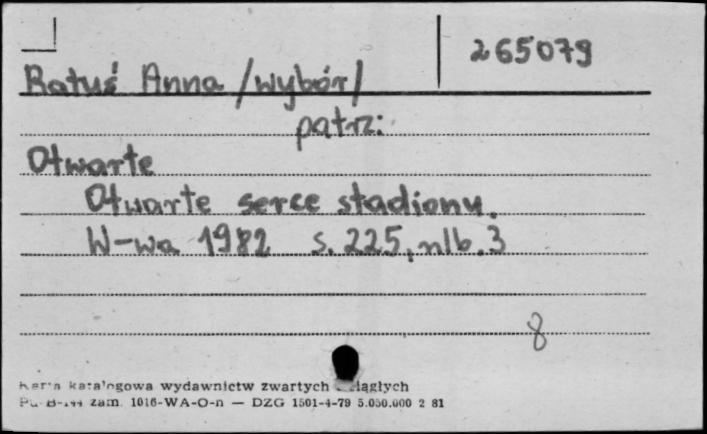 265079
Ratuś Anna /wybór/
patrz:
Otwarte
Otwarte serce stadionu.
W-wa 1982 s. 225, nlb. 3
8
Karta katalogowa wydawnictw zwartych ciągłych
Pu-B-144 zam. 1016-WA-O-n — DZG 1501-4-79 5.050.000 2 81